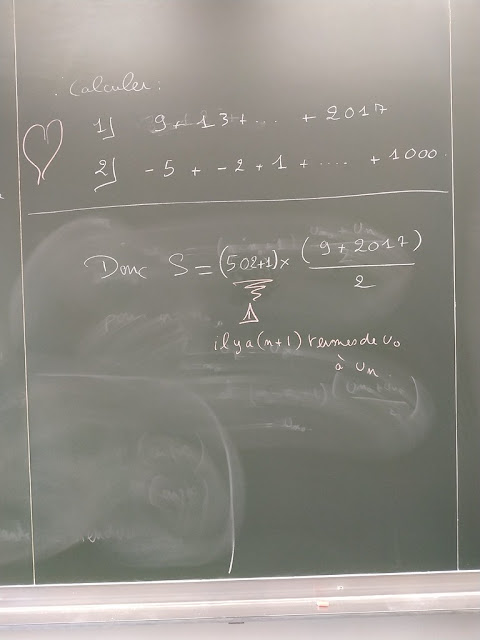 Calculer:
1) 9 + 13 + ... + 2017
2) -5 + -2 + 1 + .... + 1000.
Donc S = (502+1) × (9 + 2017) / 2
il y a (n+1) termes de u₀
à uₙ